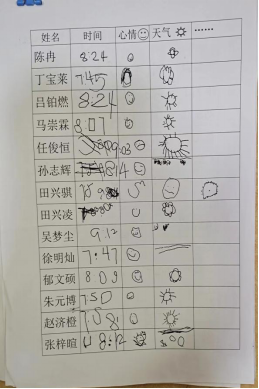 姓名 时间 心情 天气 ……
陈冉 8:24
丁宝莱 7:45
吕铂燃 8:24
马崇霖 8:07
任俊恒
孙志辉
田兴骐
田兴凌
吴梦尘 9.12
徐明灿 7:47
郁文硕 8 0 9
朱元博 7 5 0
赵济橙
张梓暄 8:12